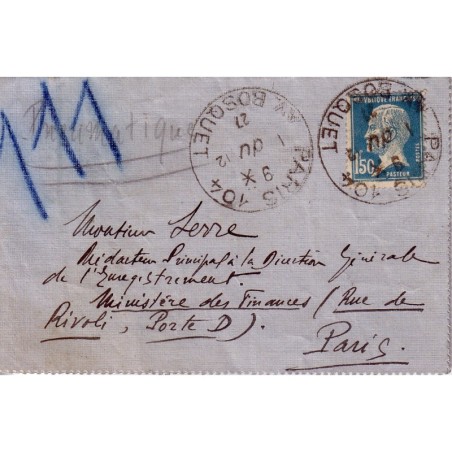 Pneumatique
PARIS 104
AV BOSQUET
9 * 12
27
REPUBLIQUE FRANÇAISE
POSTES
1F50
PASTEUR
PARIS 104
Monsieur Serre
Rédacteur Principal à la Direction Générale
de l'Enregistrement.
Ministère des Finances (Rue de
Rivoli, Porte D).
Paris.